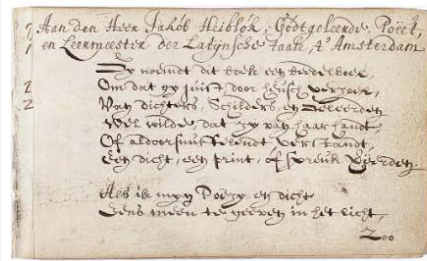 Aan den Heer Jakob Heiblok, Godtgeleerde, Poëet,
en Leermeester der Latynsche taale, t' Amsterdam
Gy noemdt dit boek een bedelboek,
Om dat gy juist door heusch verzoek,
Van dichters, Schilders, en Geleerden
Wel wilde, dat zy van haar handt,
Of aldoorsnuffelendt verstandt,
Een dicht, een print, of spreuk
Als ik myn Poëzy en dicht
Eens meen te geeven in het licht,
Zoo